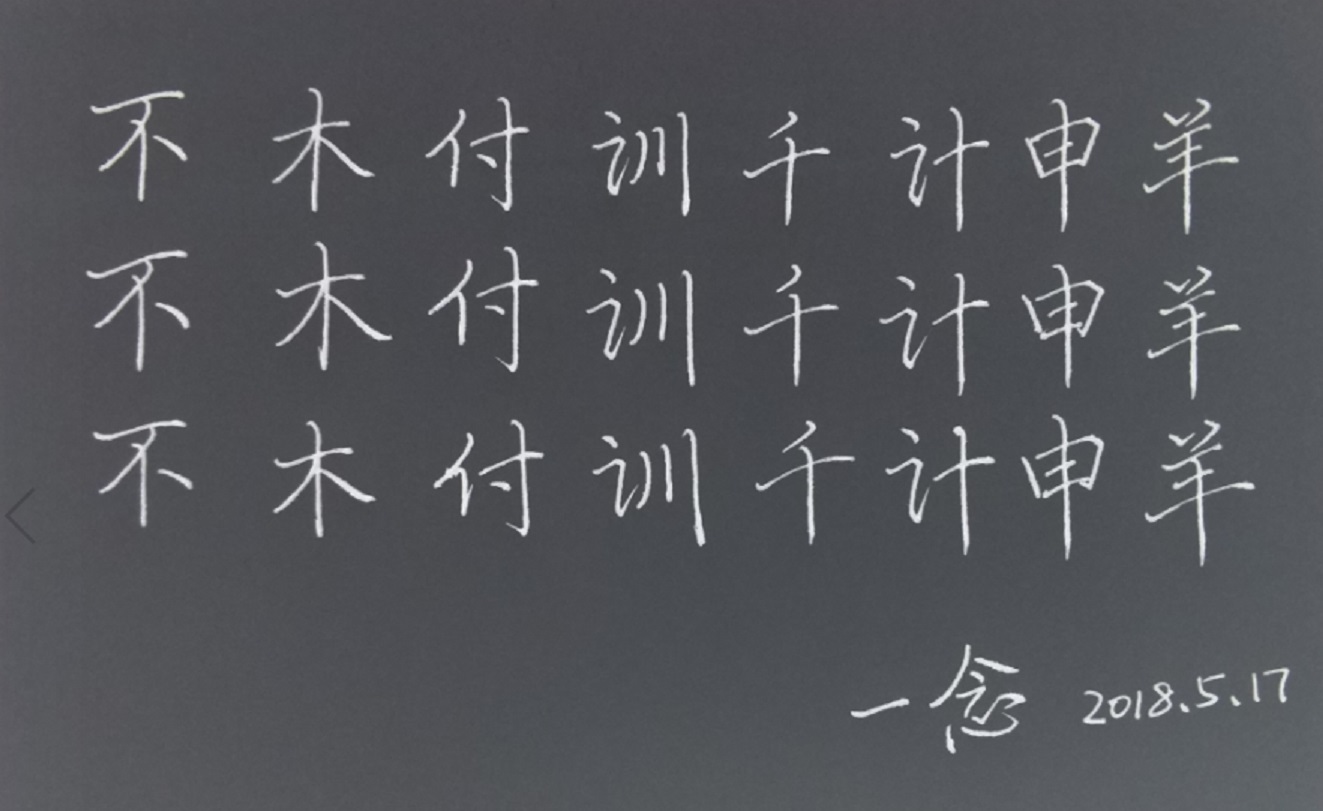 不 木 付 训 千 计 申 羊
不 木 付 训 千 计 申 羊
不 木 付 训 千 计 申 羊
一念 2018.5.17